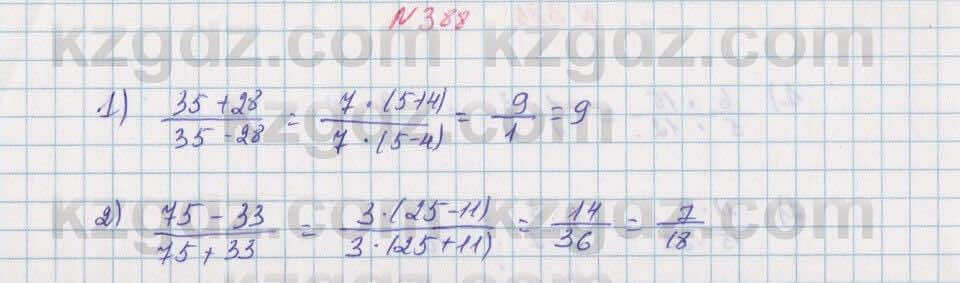 № 388
kzgdz.com kzgdz.com
1) (35 + 28)/(35 - 28) = (7 · (5+4))/(7 · (5-4)) = 9/1 = 9
kzgdz.com kzgdz.com
2) (75 - 33)/(75 + 33) = (3·(25-11))/(3·(25+11)) = 14/36 = 7/18
kzgdz.com kzgdz.com